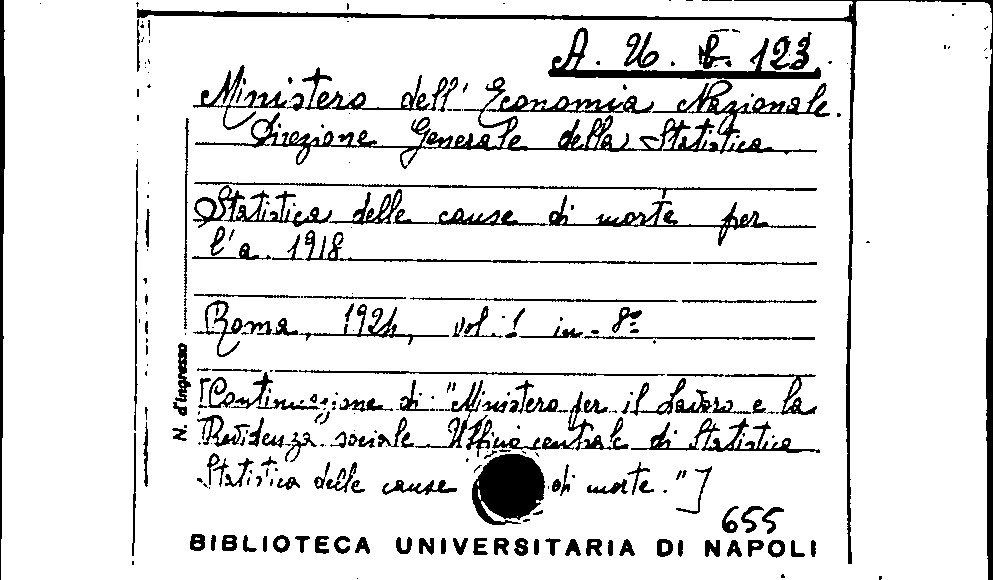 A. U. b. 123.
Ministero dell' Economia Nazionale.
Direzione Generale della Statistica.
Statistica delle cause di morte per
l'a. 1918.
Roma, 1924, vol. 1 in-8º
[Continuazione di "Ministero per il Lavoro e la
Previdenza sociale. Ufficio centrale di Statistica
Statistica delle cause di morte."]
655
N. d'ingresso
BIBLIOTECA UNIVERSITARIA DI NAPOLI